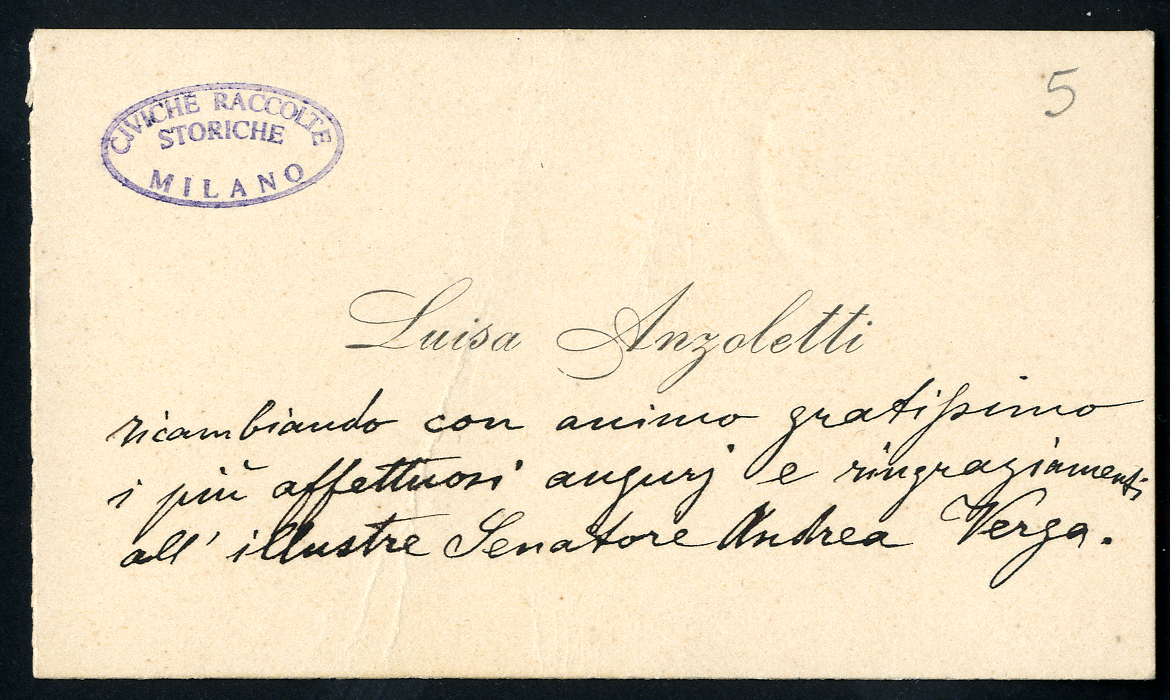 CIVICHE RACCOLTE
STORICHE
MILANO
5
Luisa Anzoletti
ricambiando con animo gratissimo
i più affettuosi augurj e ringraziamenti
all' illustre Senatore Andrea Verga.